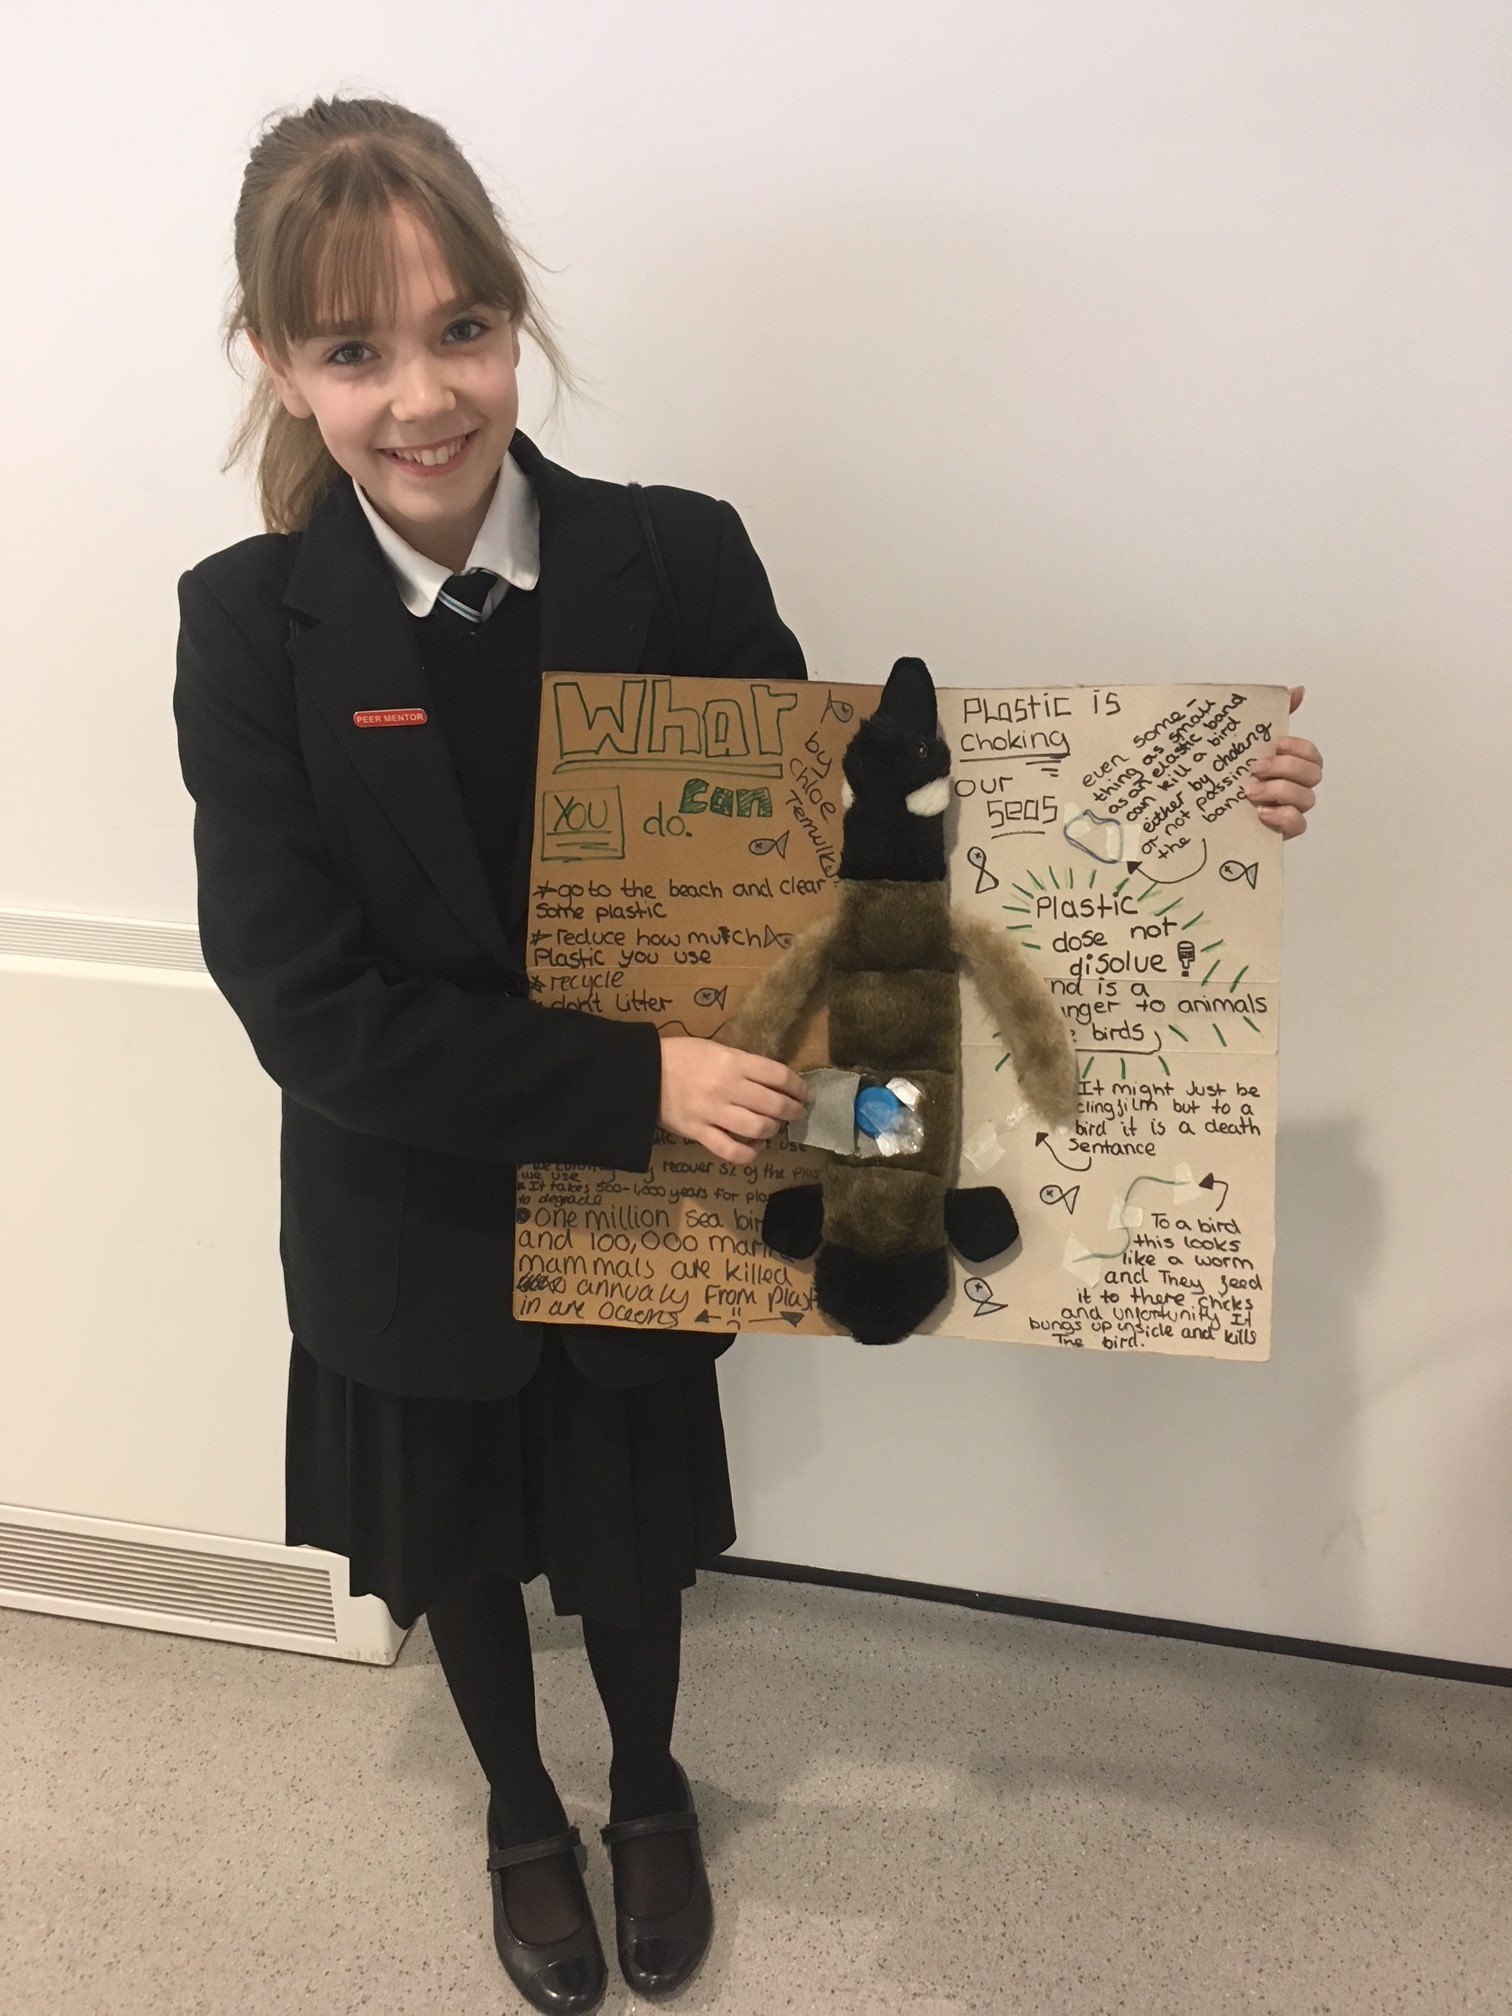 PEER MENTOR
What
YOU can
do.
by
Chloe
* go to the beach and clear
some plastic
* reduce how much
Plastic you use
* recycle
* don't litter
recover 5% of the
we use
* It takes 500-1,000 years for
to degrade
One million sea
and 100,000
mammals are killed
annualy From
in are Oceans
PLastic is
Choking
our
Seas
even some-
thing as small
as an elastic band
can kill a bird
either by choking
or not passing
the band
Plastic
dose not
disolve !
is a
to animals
birds
It might Just be
clingfilm but to a
bird it is a death
sentance
To a bird
this looks
like a worm
and They feed
it to there chicks
and unfortunity It
bungs up inside and kills
The bird.